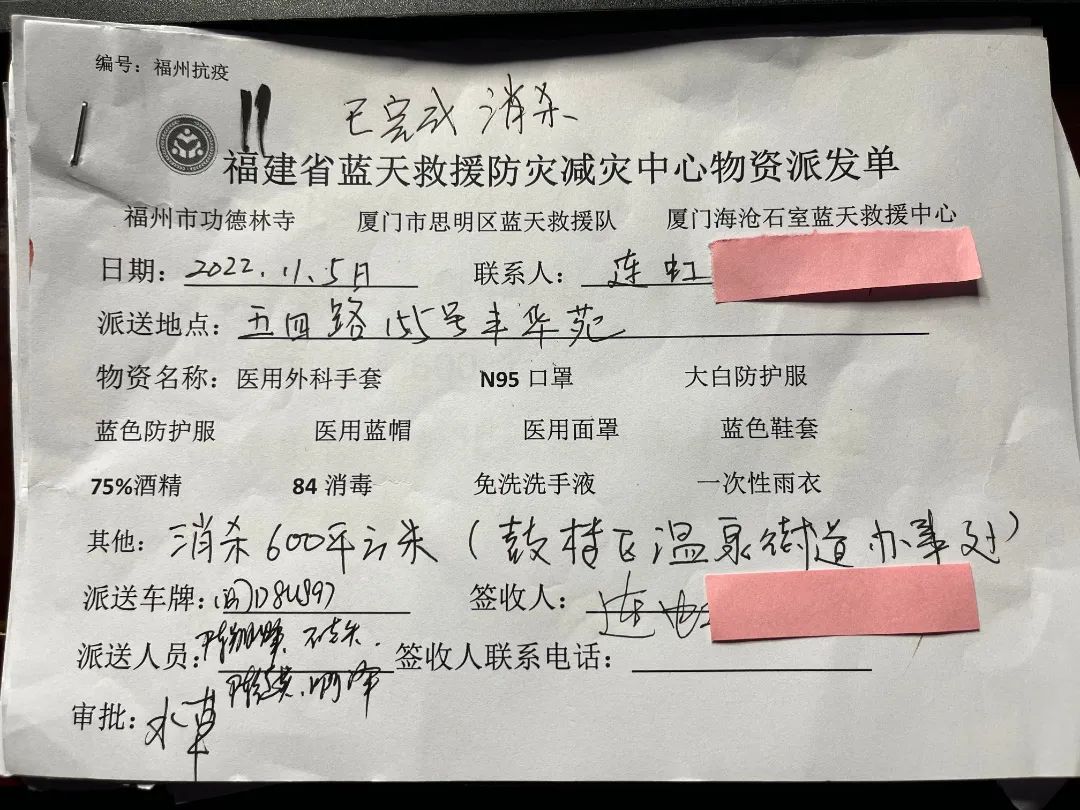 编号：福州抗疫
11 已完成消杀
福建省蓝天救援防灾减灾中心物资派发单
福州市功德林寺 厦门市思明区蓝天救援队 厦门海沧石室蓝天救援中心
日期：2022.11.5日 联系人：连虹
派送地点：五四路155号丰华苑
物资名称：医用外科手套 N95 口罩 大白防护服
蓝色防护服 医用蓝帽 医用面罩 蓝色鞋套
75%酒精 84 消毒 免洗洗手液 一次性雨衣
其他：消杀600平方米（鼓楼区温泉街道办事处）
派送车牌： 签收人：连虹
派送人员： 签收人联系电话：
审批：